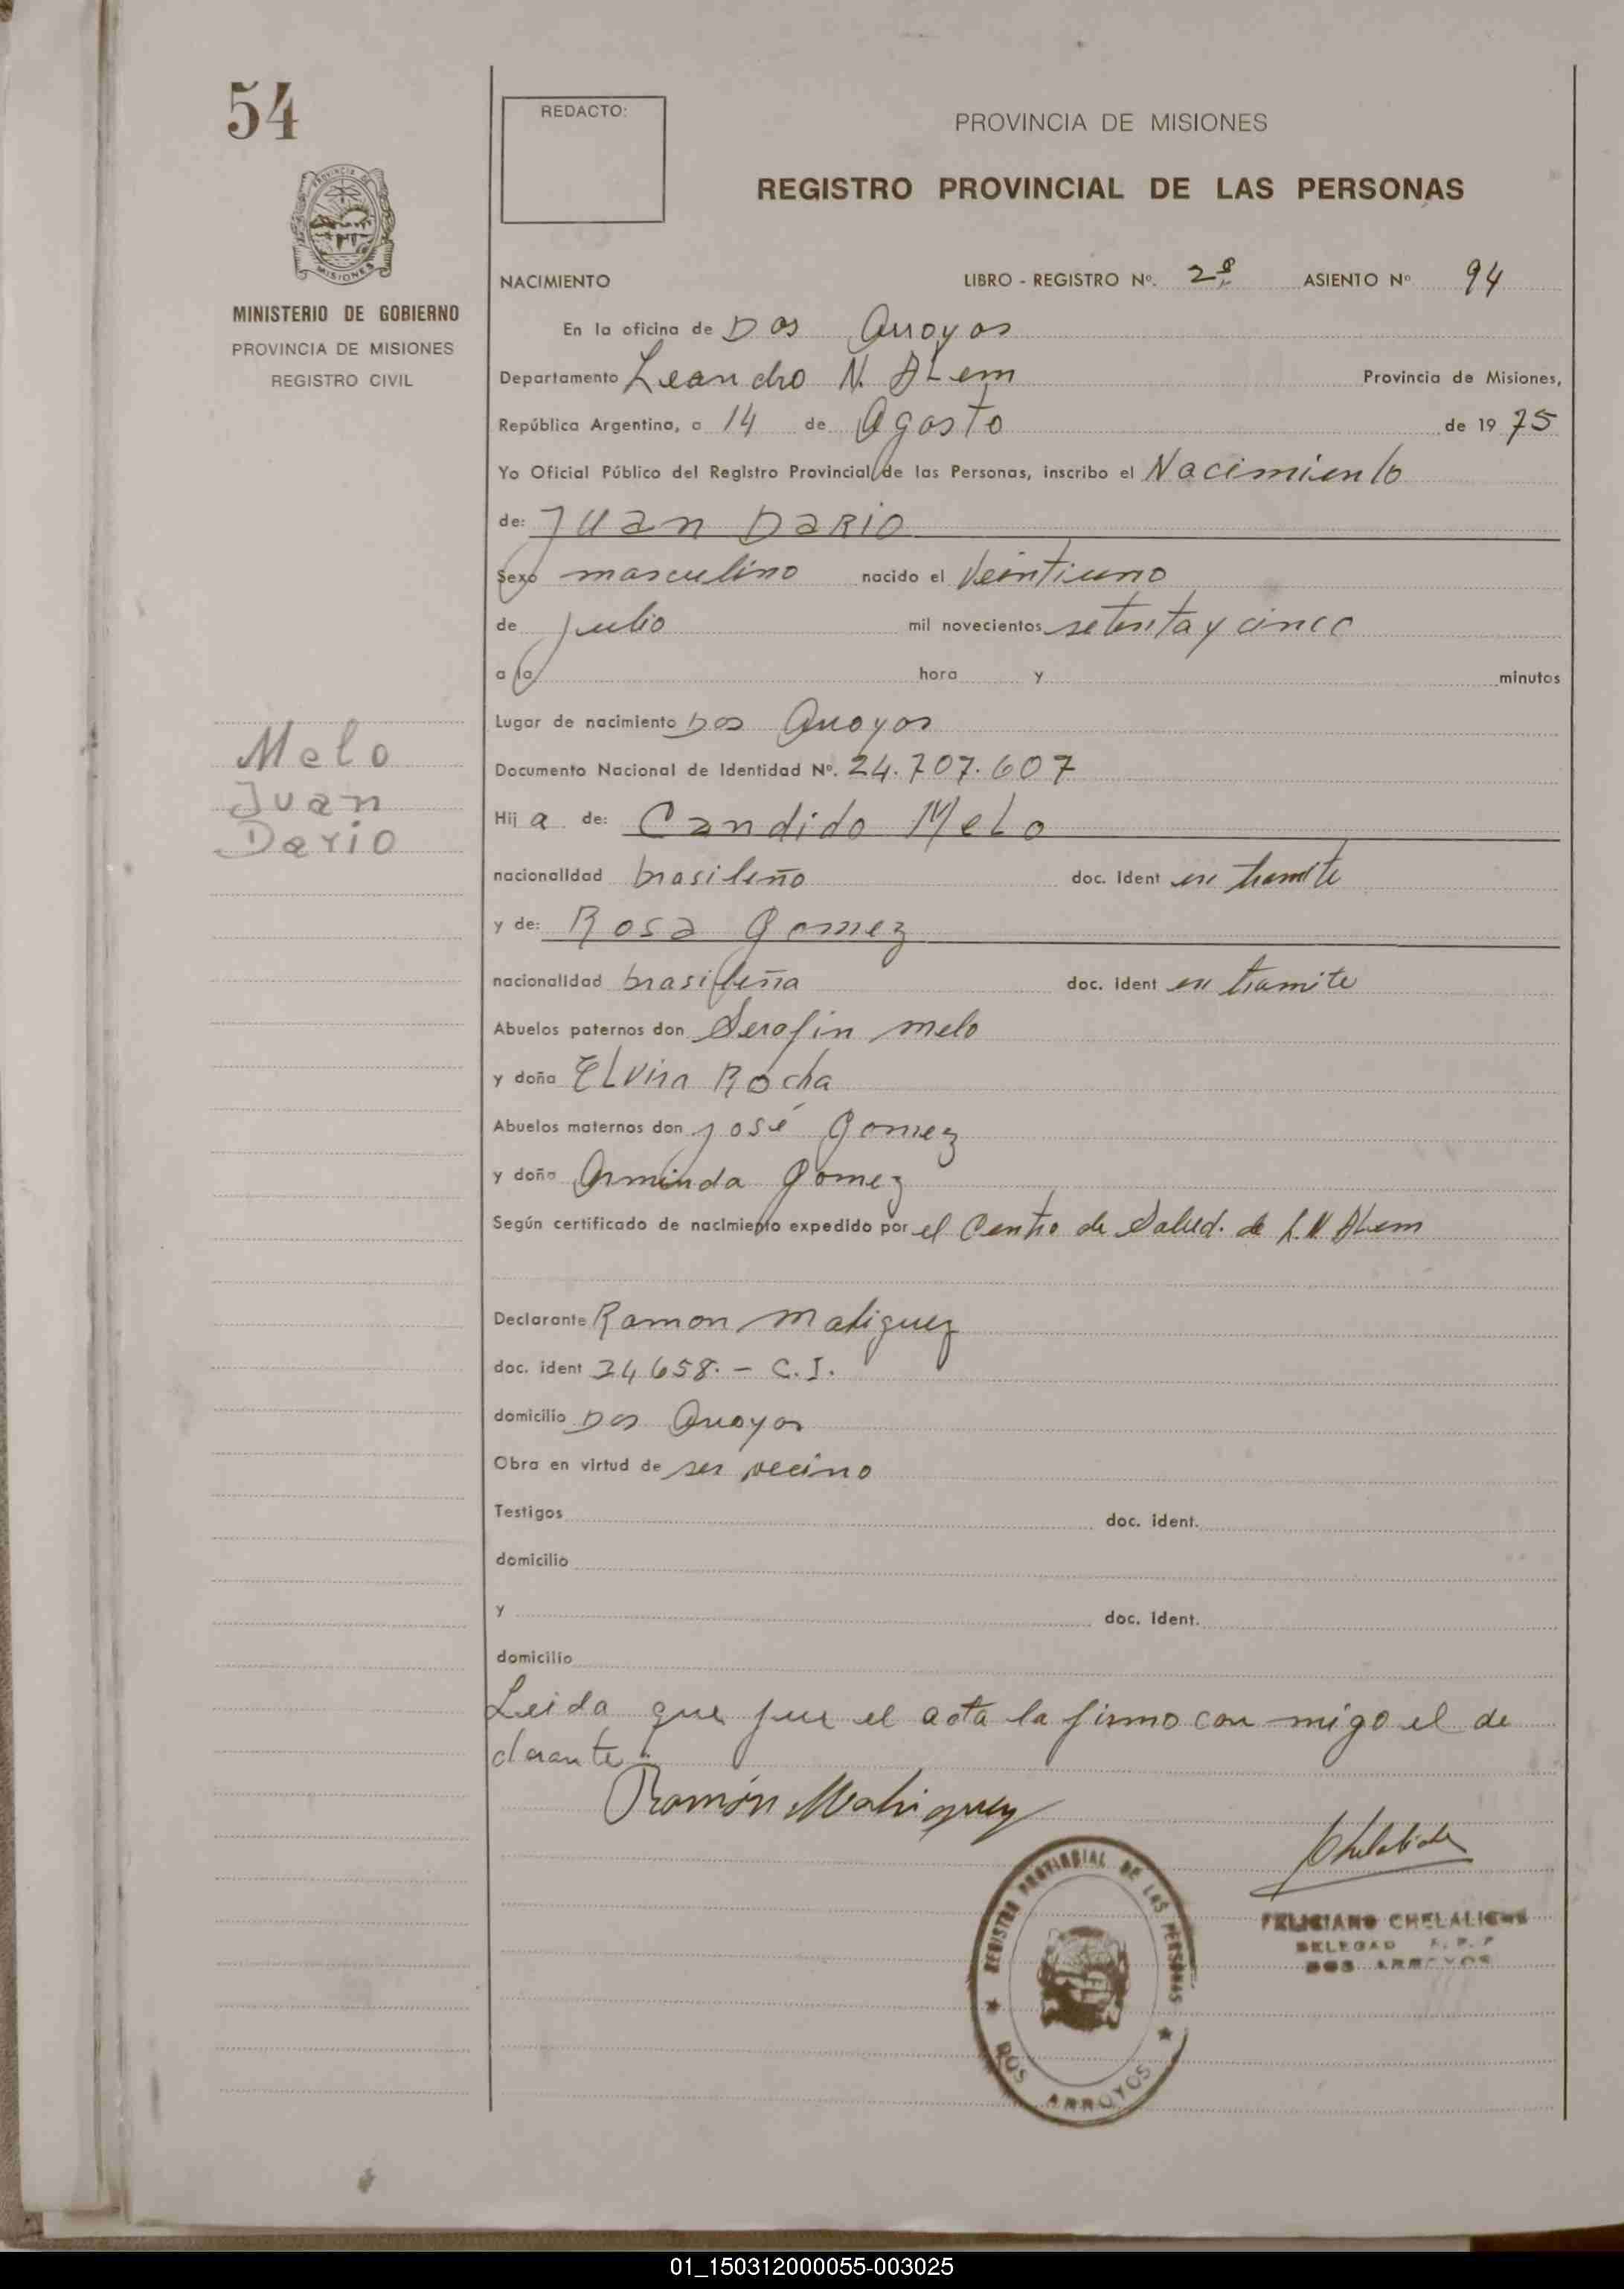 54
REDACTO:
PROVINCIA DE MISIONES
REGISTRO PROVINCIAL DE LAS PERSONAS
PROVINCIA DE
MISIONES
MINISTERIO DE GOBIERNO
PROVINCIA DE MISIONES
REGISTRO CIVIL
NACIMIENTO LIBRO - REGISTRO Nº. 2º ASIENTO Nº 94
En la oficina de Dos Arroyos
Departamento Leandro N. ALem Provincia de Misiones,
República Argentina, a 14 de Agosto de 1975
Yo Oficial Público del Registro Provincial de las Personas, inscribo el Nacimiento
de: Juan DaRio
Sexo masculino nacido el Veintiuno
de Julio mil novecientos setenta y cinco
a la hora y minutos
Lugar de nacimiento Dos Arroyos
Melo
Juan
Dario
Documento Nacional de Identidad Nº. 24.707.607
Hij a de: Candido MeLo
nacionalidad brasileño doc. Ident en tramite
y de: Rosa Gomez
nacionalidad brasileña doc. Ident en tramite
Abuelos paternos don Serafin melo
y doña ELvira Rocha
Abuelos maternos don José Gomez
y doña Arminda Gomez
Según certificado de nacimiento expedido por el Centro de Salud. de L.N ALem
Declarante Ramon
doc. ident 34658. - C.I.
domicilio Dos Arroyos
Obra en virtud de ser vecino
Testigos doc. ident.
domicilio
y doc. Ident.
domicilio
Leida que fue el acta la firmo con migo el de
clarante
Ramón
REGISTRO PROVINCIAL DE LAS PERSONAS
DOS ARROYOS
FELICIANO
DELEGAD R. P. P
DOS ARROYOS
01_150312000055-003025